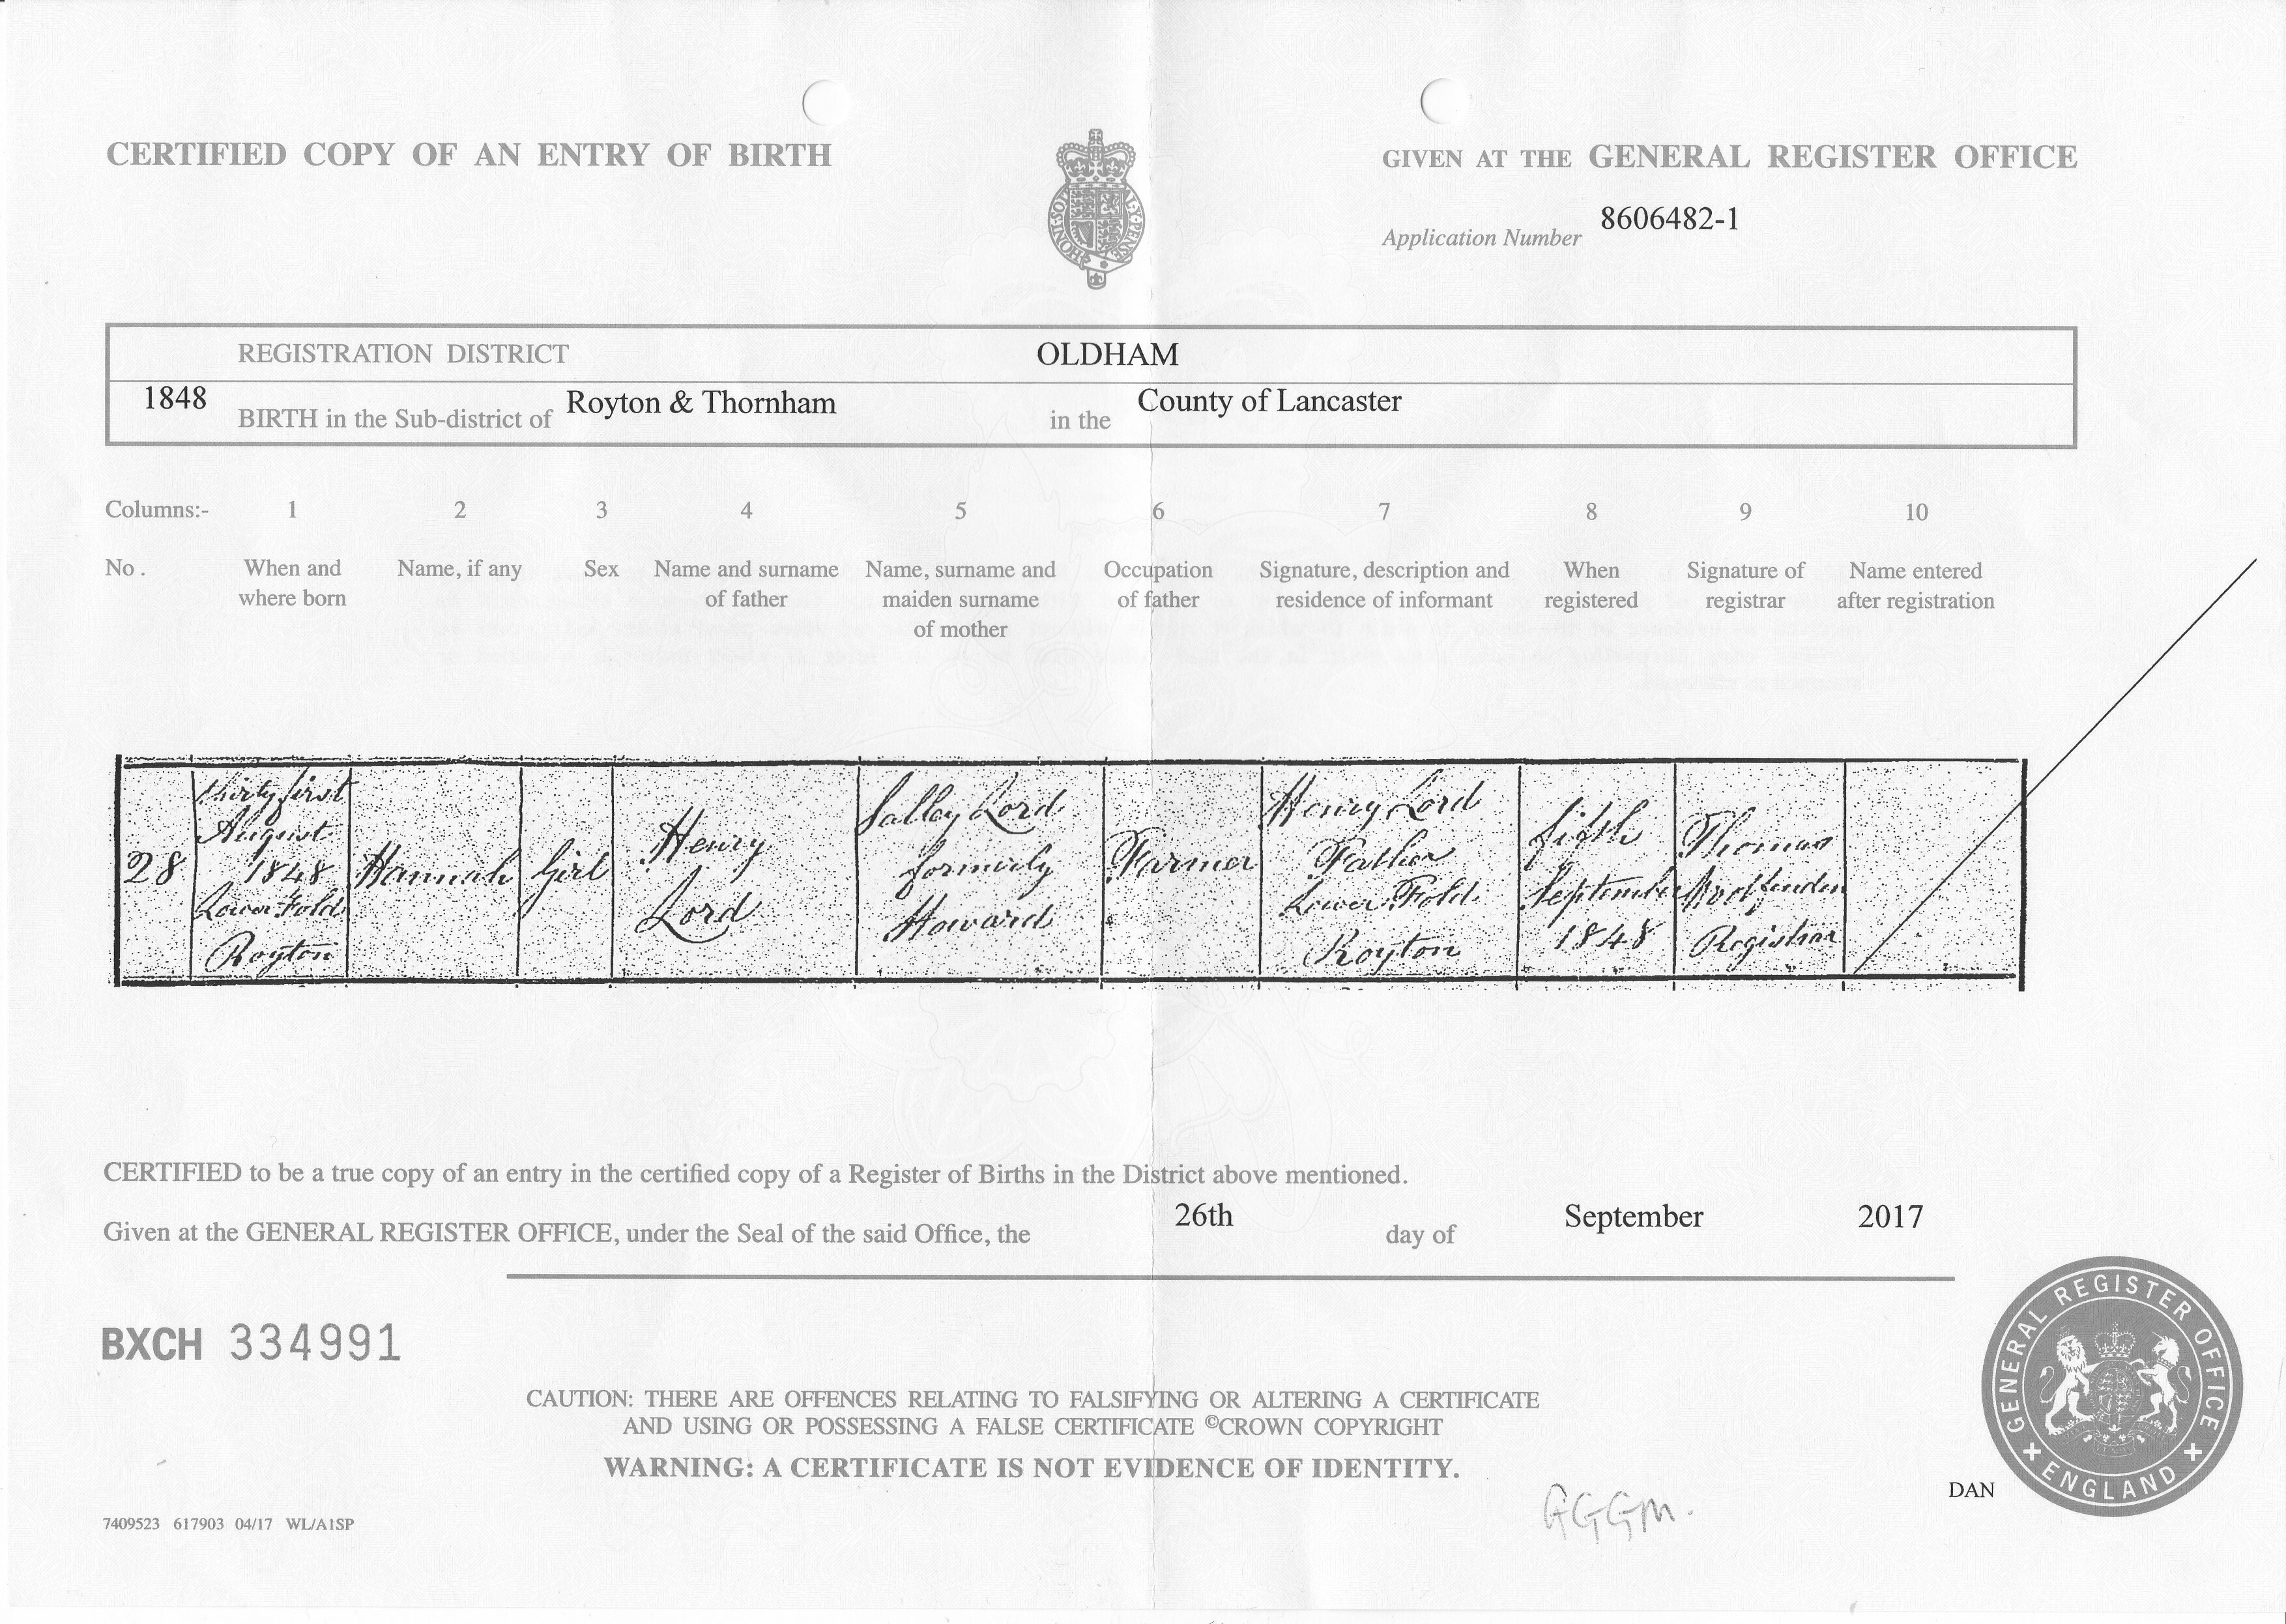 CERTIFIED COPY OF AN ENTRY OF BIRTH
GIVEN AT THE GENERAL REGISTER OFFICE
HONI SOIT
MAL Y PENSE
Application Number 8606482-1
REGISTRATION DISTRICT OLDHAM
1848 BIRTH in the Sub-district of Royton & Thornham in the County of Lancaster
Columns:- 1 2 3 4 5 6 7 8 9 10
No. When and where born
Name, if any
Sex
Name and surname of father
Name, surname and maiden surname of mother
Occupation of father
Signature, description and residence of informant
When registered
Signature of registrar
Name entered after registration
28
Thirty first
August
1848
Lower Fold
Royton
Hannah
Girl
Henry
Lord
Salley Lord
formerly
Howard
Farmer
Henry Lord
Father
Lower Fold
Royton
fifth
September
1848
Thomas
Wolfenden
Registrar
CERTIFIED to be a true copy of an entry in the certified copy of a Register of Births in the District above mentioned.
Given at the GENERAL REGISTER OFFICE, under the Seal of the said Office, the 26th day of September 2017
BXCH 334991
CAUTION: THERE ARE OFFENCES RELATING TO FALSIFYING OR ALTERING A CERTIFICATE
AND USING OR POSSESSING A FALSE CERTIFICATE ©CROWN COPYRIGHT
WARNING: A CERTIFICATE IS NOT EVIDENCE OF IDENTITY.
GGGM.
DAN
GENERAL REGISTER OFFICE
ENGLAND
7409523 617903 04/17 WL/A1SP